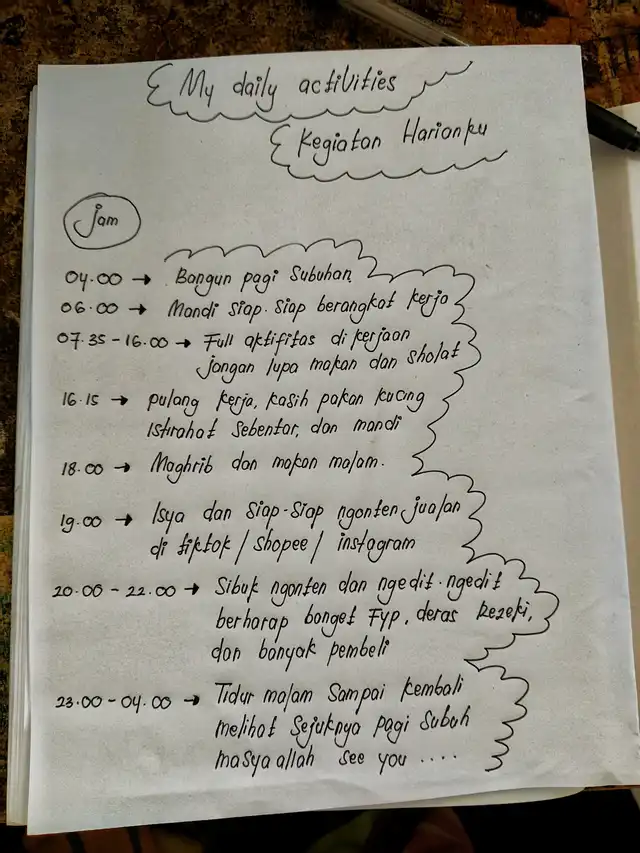 My daily activities
Kegiatan Harianku
Jam
04.00 → Bangun pagi Subuhan
06.00 → Mandi siap-siap berangkat kerja
07.35 - 16.00 → Full aktifitas di kerjaan
jangan lupa makan dan sholat
16.15 → pulang kerja, kasih pakan kucing
Istirahat sebentar, dan mandi
18.00 → Maghrib dan makan malam.
19.00 → Isya dan siap-siap ngonten jualan
di tiktok / shopee / instagram
20.00 - 22.00 → Sibuk ngonten dan ngedit-ngedit
berharap banget Fyp, deras rezeki,
dan banyak pembeli
23.00 - 04.00 → Tidur malam sampai kembali
melihat sejuknya pagi subuh
masya allah see you ....